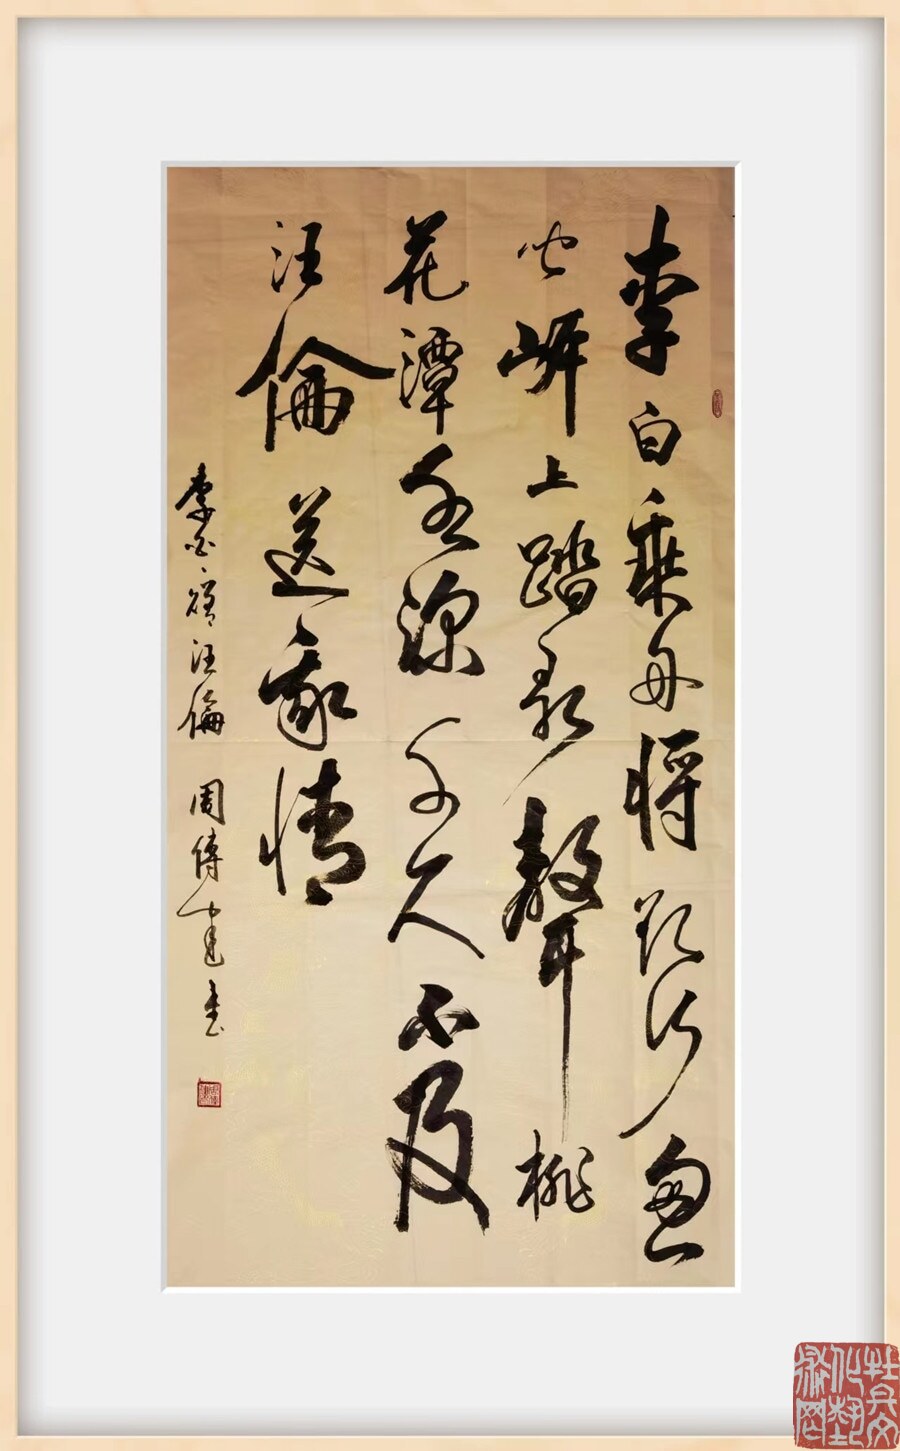 李白乘舟将欲行忽
闻岸上踏歌聲桃
花潭水深千尺不及
汪倫送我情
李白赠汪倫 周傳建書